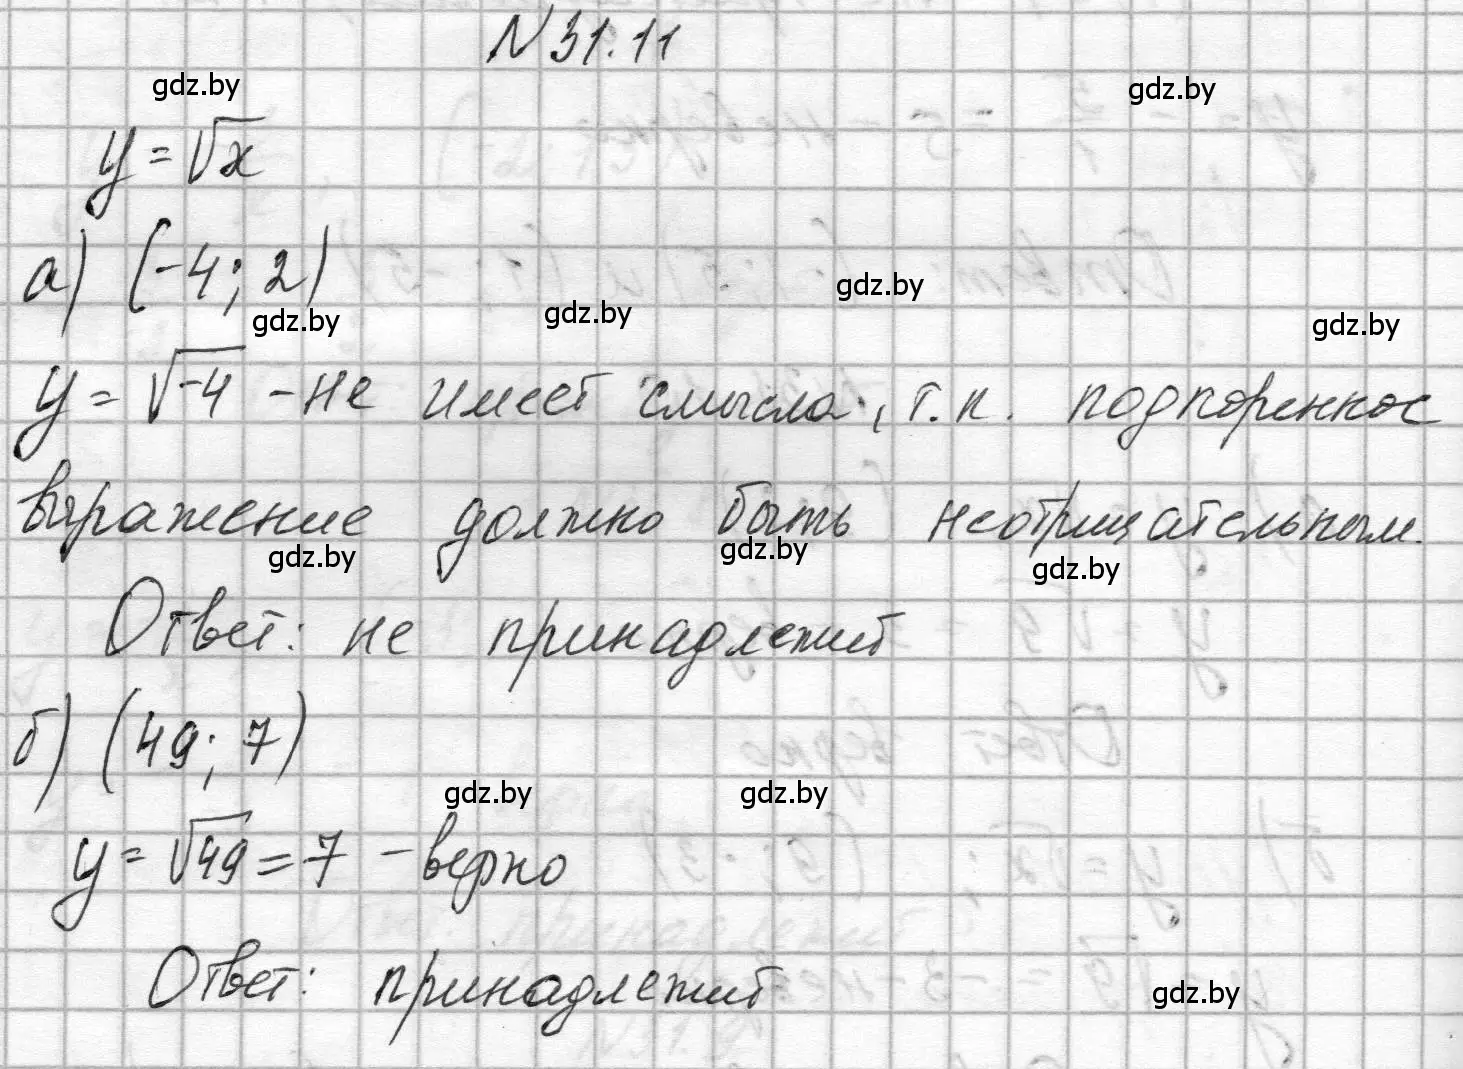 N31.11
gdz.by
gdz.by
y = √x
а) (-4; 2)
gdz.by
gdz.by
gdz.by
gdz.by
y = √-4 - не имеет смысла, т.к. подкоренное
выражение должно быть неотрицательным.
gdz.by
gdz.by
gdz.by
Ответ: не принадлежит
б) (49; 7)
gdz.by
gdz.by
y = √49 = 7 - верно
Ответ: принадлежит
gdz.by